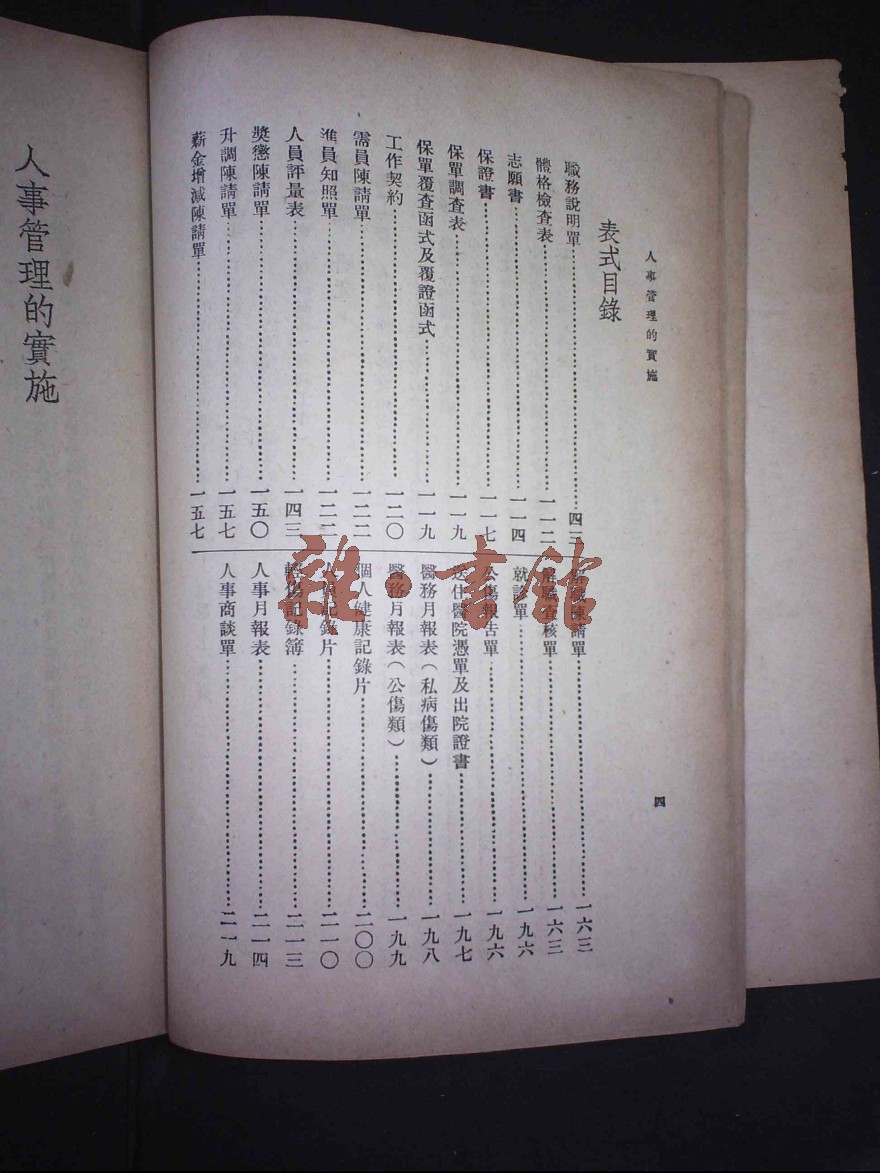 人事管理的實施
四
表式目錄
職務說明單 四三
體格檢查表 一一二
志願書 一一四
保證書 一一七
保單調查表 一一九
保單覆查函式及覆證函式 一一九
工作契約 一二〇
需員陳請單 一二二
進員知照單 一二二
人員評量表 一四三
獎懲陳請單 一五〇
升調陳請單 一五七
薪金增減陳請單 一五七
陳請單 一六三
查核單 一六三
就診單 一九六
公傷報告單 一九六
送住醫院憑單及出院證書 一九七
醫務月報表(私病傷類) 一九八
醫務月報表(公傷類) 一九九
個人健康記錄片 二〇〇
人 記錄片 二一〇
輕傷記錄簿 二一三
人事月報表 二一四
人事商談單 二一九
人事管理的實施
雜·書館